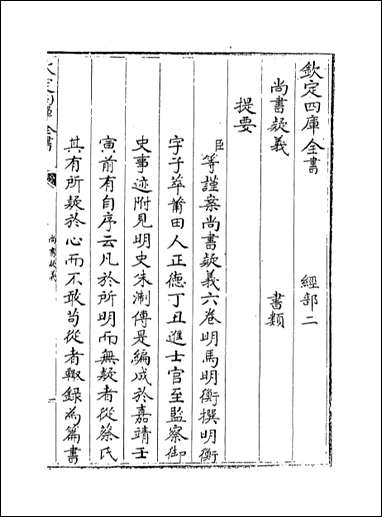 欽定四庫全書　　　經部二
尚書疑義　　　書類
提要
臣等謹案尚書疑義六卷明馬明衡撰明衡
字子萃莆田人正德丁丑進士官至監察御
史事迹附見明史朱淛傳是編成於嘉靖壬
寅前有自序云凡於所明而無疑者從蔡氏
其有所疑於心而不敢苟從者輒録為篇書
欽定四庫全書
尚書疑義
一